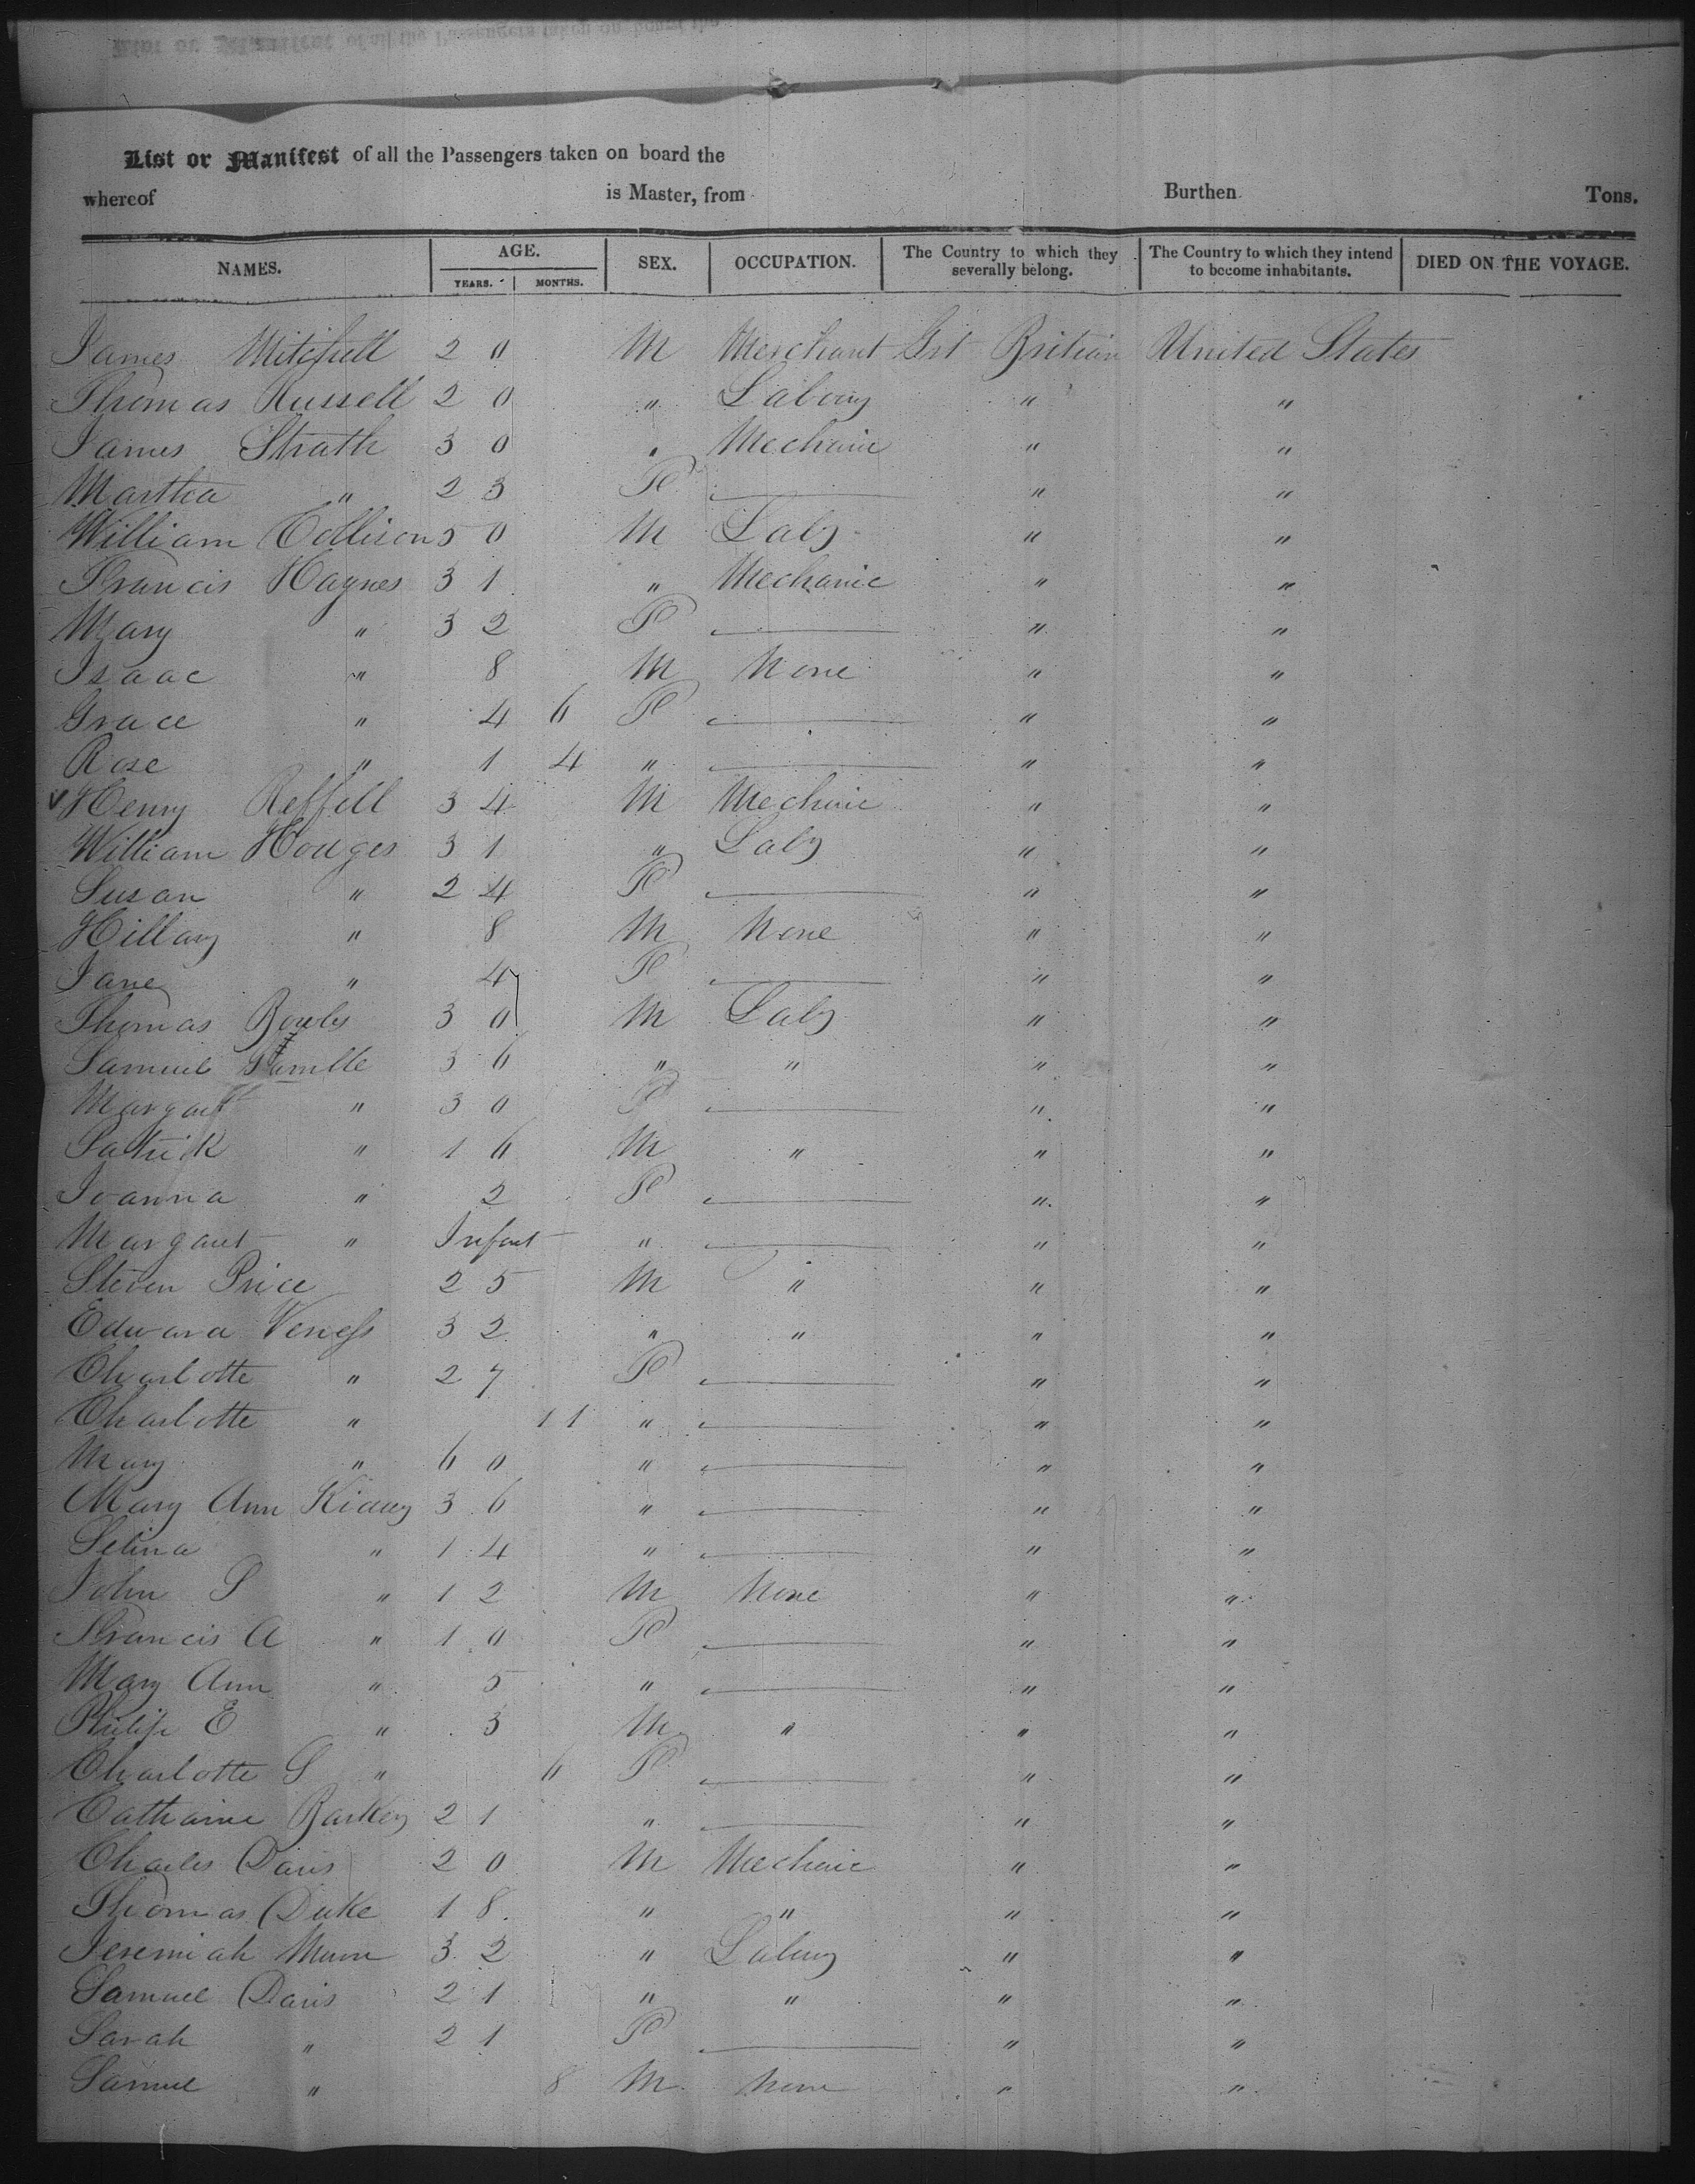 List or Manifest of all the Passengers taken on board the
whereof is Master, from Burthen Tons.
NAMES. AGE. YEARS. MONTHS. SEX. OCCUPATION. The Country to which they severally belong. The Country to which they intend to become inhabitants. DIED ON THE VOYAGE.
James Mitchell 20 M Merchant Grt Britian United States
Thomas Russell 20 " " "
James Strath 30 " Mechanic " "
Martha " 23 F — " "
William Collison 50 M Labr " "
Francis Haynes 31 " Mechanic " "
Mary " 32 F — " "
Isaac " 8 M None " "
Grace " 4 6 F — " "
Rose " 1 4 " — " "
Henry Reffell 34 M Mechnic " "
William Hodges 31 " Labr " "
Susan " 24 F — " "
Hillary " 8 M None " "
Jane " 4 F — " "
Thomas Bowles 30 M Labr " "
Samuel 36 " " " "
Margaret " 30 F — " "
Patrick " 16 M " " "
Joanna " 2 F — " "
Margaret " Infant " — " "
Steven Price 25 M " " "
Edward Veness 32 " " " "
Charlotte " 27 F — " "
Charlotte " 11 " — " "
Mary " 60 " — " "
Mary Ann 36 " — " "
Selina " 14 " — " "
John S " 12 M None " "
Francis A " 10 F — " "
Mary Ann " 5 " — " "
Philip E " 3 M " " "
Charlotte S " 6 F — " "
Catharine Barkey 21 " — " "
Charles Davis 20 M Mechnic " "
Thomas Duke 18 " " " "
Jeremiah Munn 32 " " "
Samuel Davis 21 " " " "
Sarah " 21 F — " "
Samuel " 8 M None " "